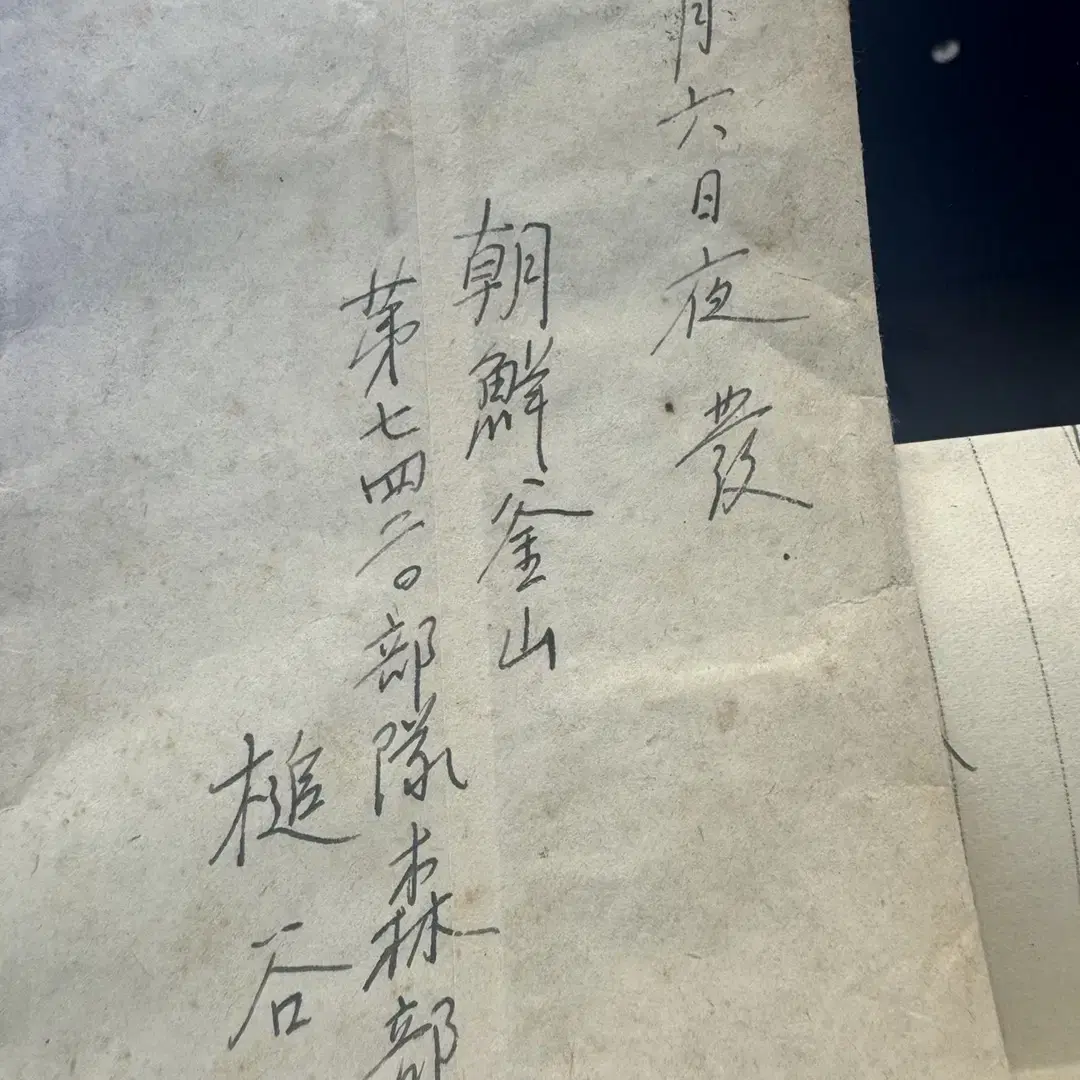 月六日夜發.
朝鮮釜山
第七四二〇部隊森部
槌谷